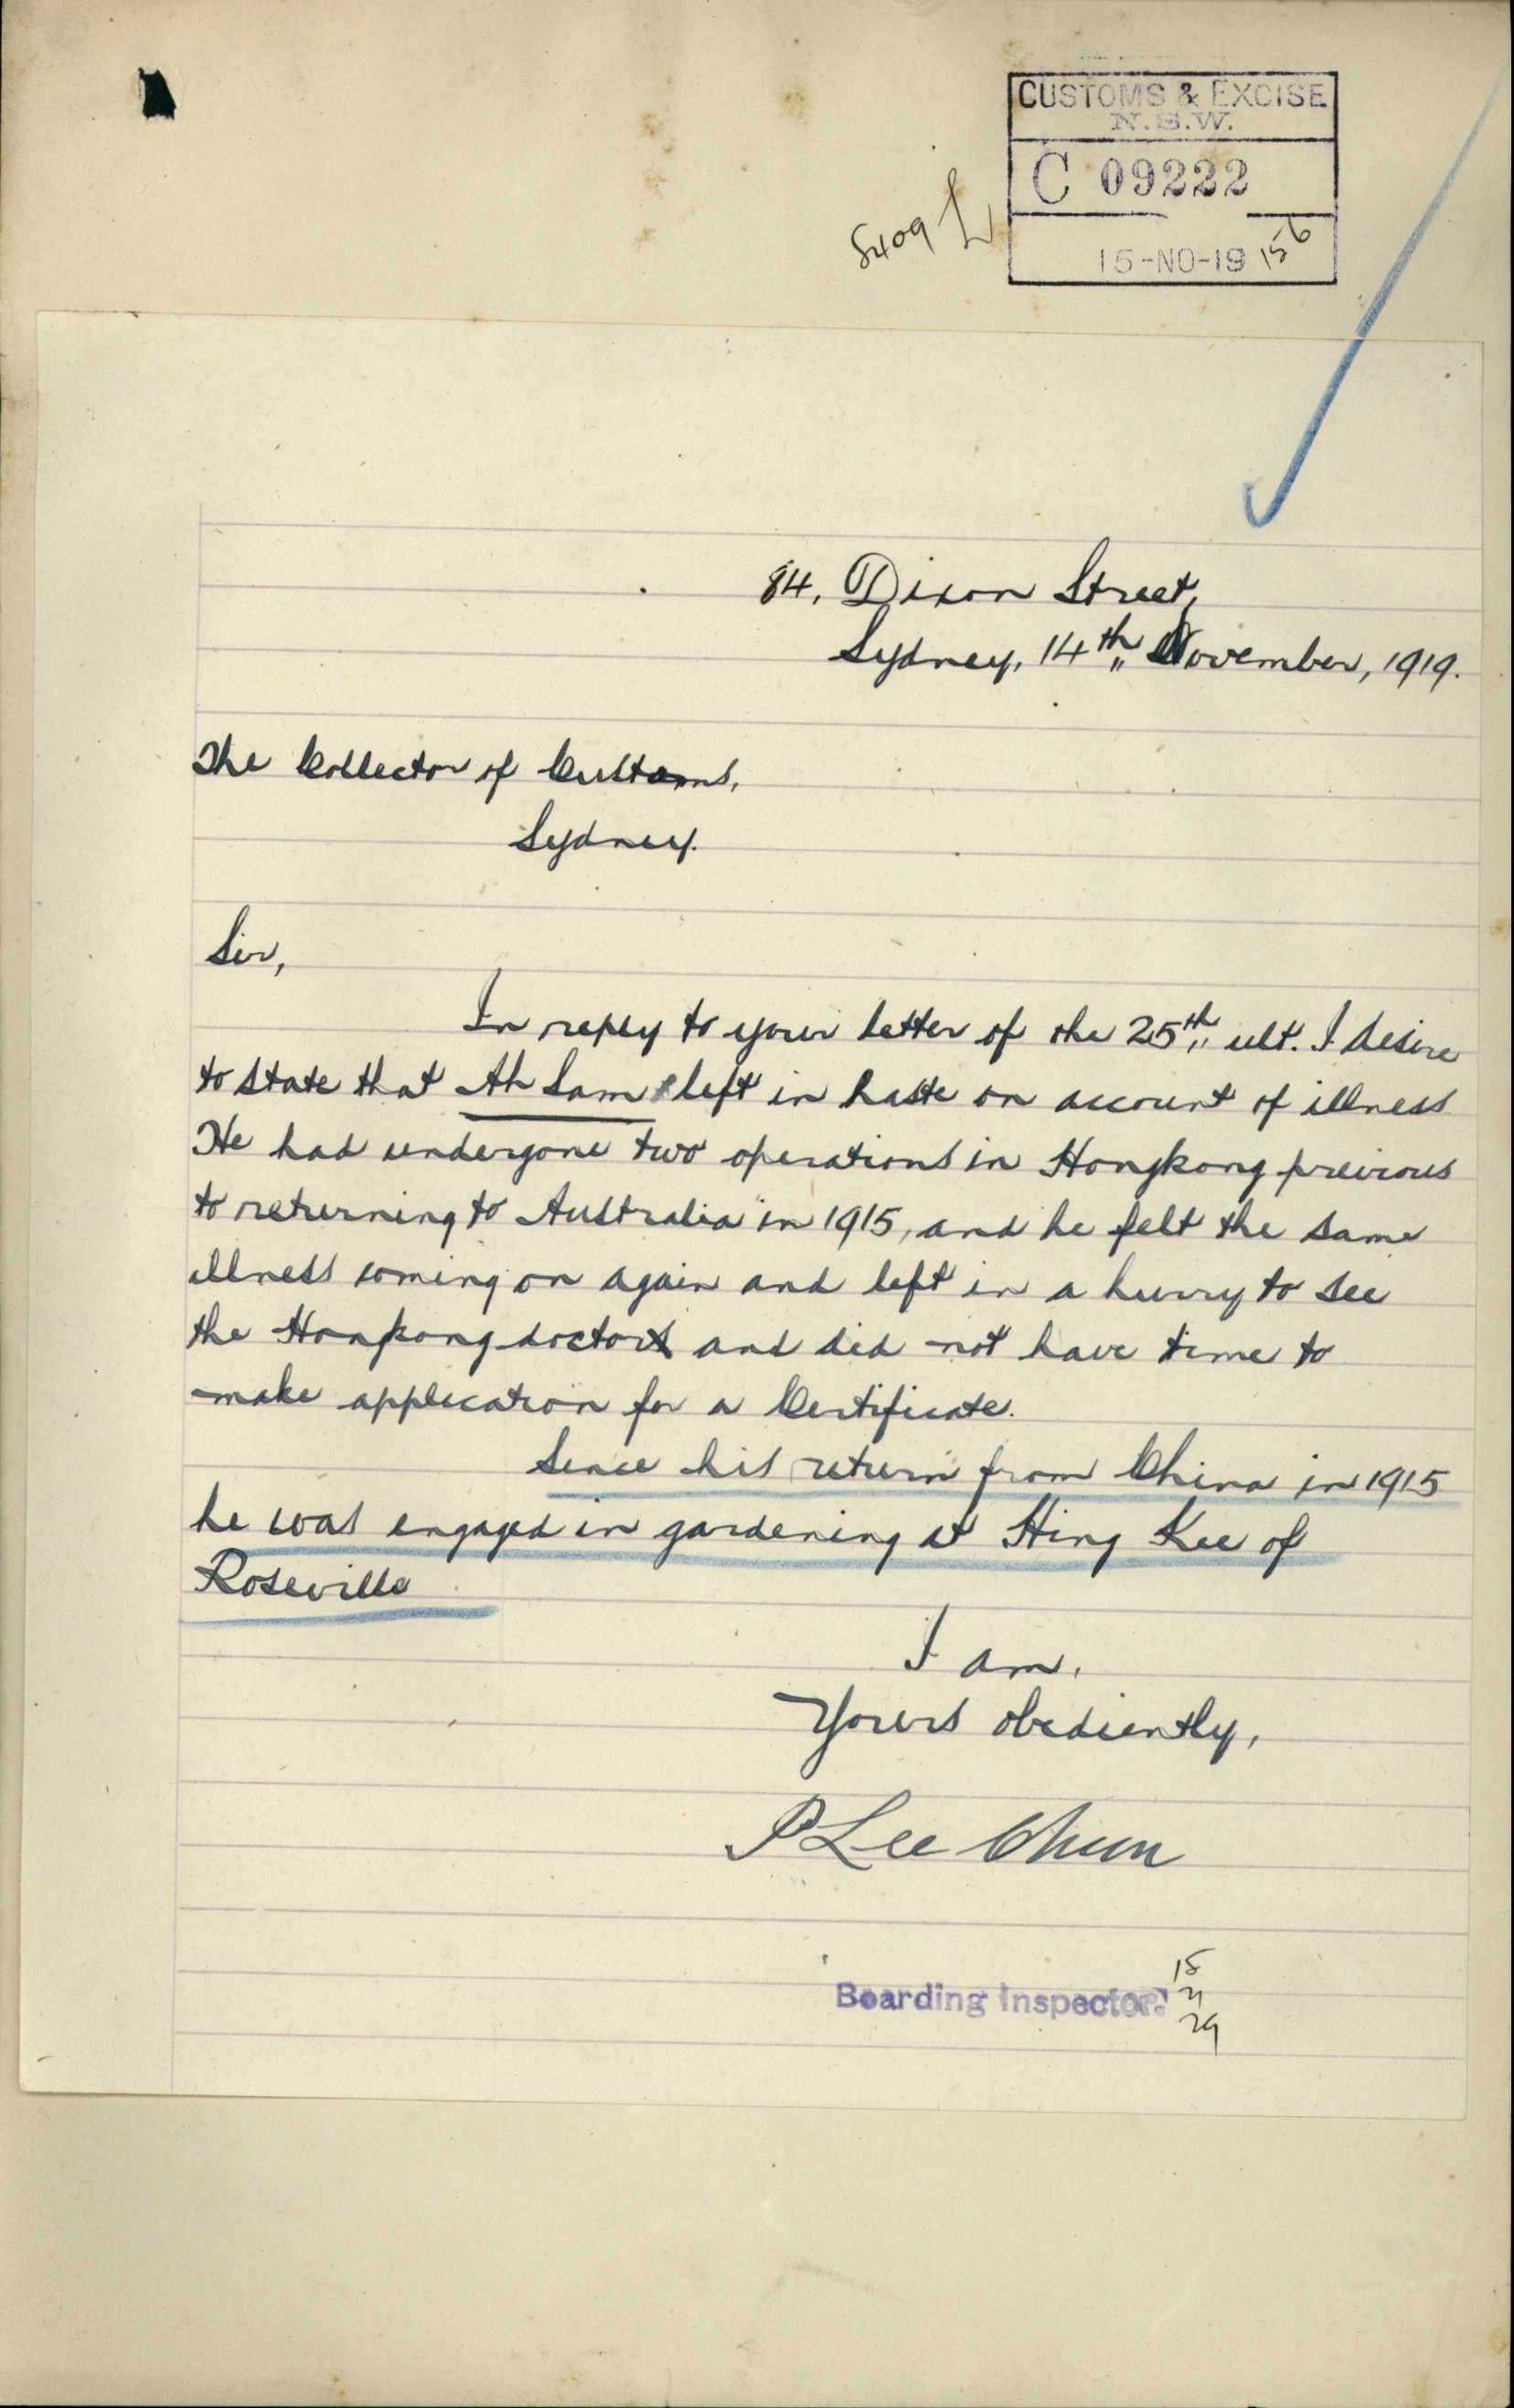 CUSTOMS & EXCISE
N.S.W.
C 09222
15-NO-19 156
8409
84, Dixon Street,
Sydney, 14th November, 1919.
The Collector of Customs,
Sydney.
Sir,
In reply to your letter of the 25th ult. I desire
to state that Ah Sam left in haste on account of illness
He had undergone two operations in Hongkong previous
to returning to Australia in 1915, and he felt the same
illness coming on again and left in a hurry to see
the Honkong doctor and did not have time to
make application for a Certificate.
Since his return from China in 1915
he was engaged in gardening at Hing Kee of
Roseville
I am,
Yours obediently,
P Lee Chun
Boarding Inspector.